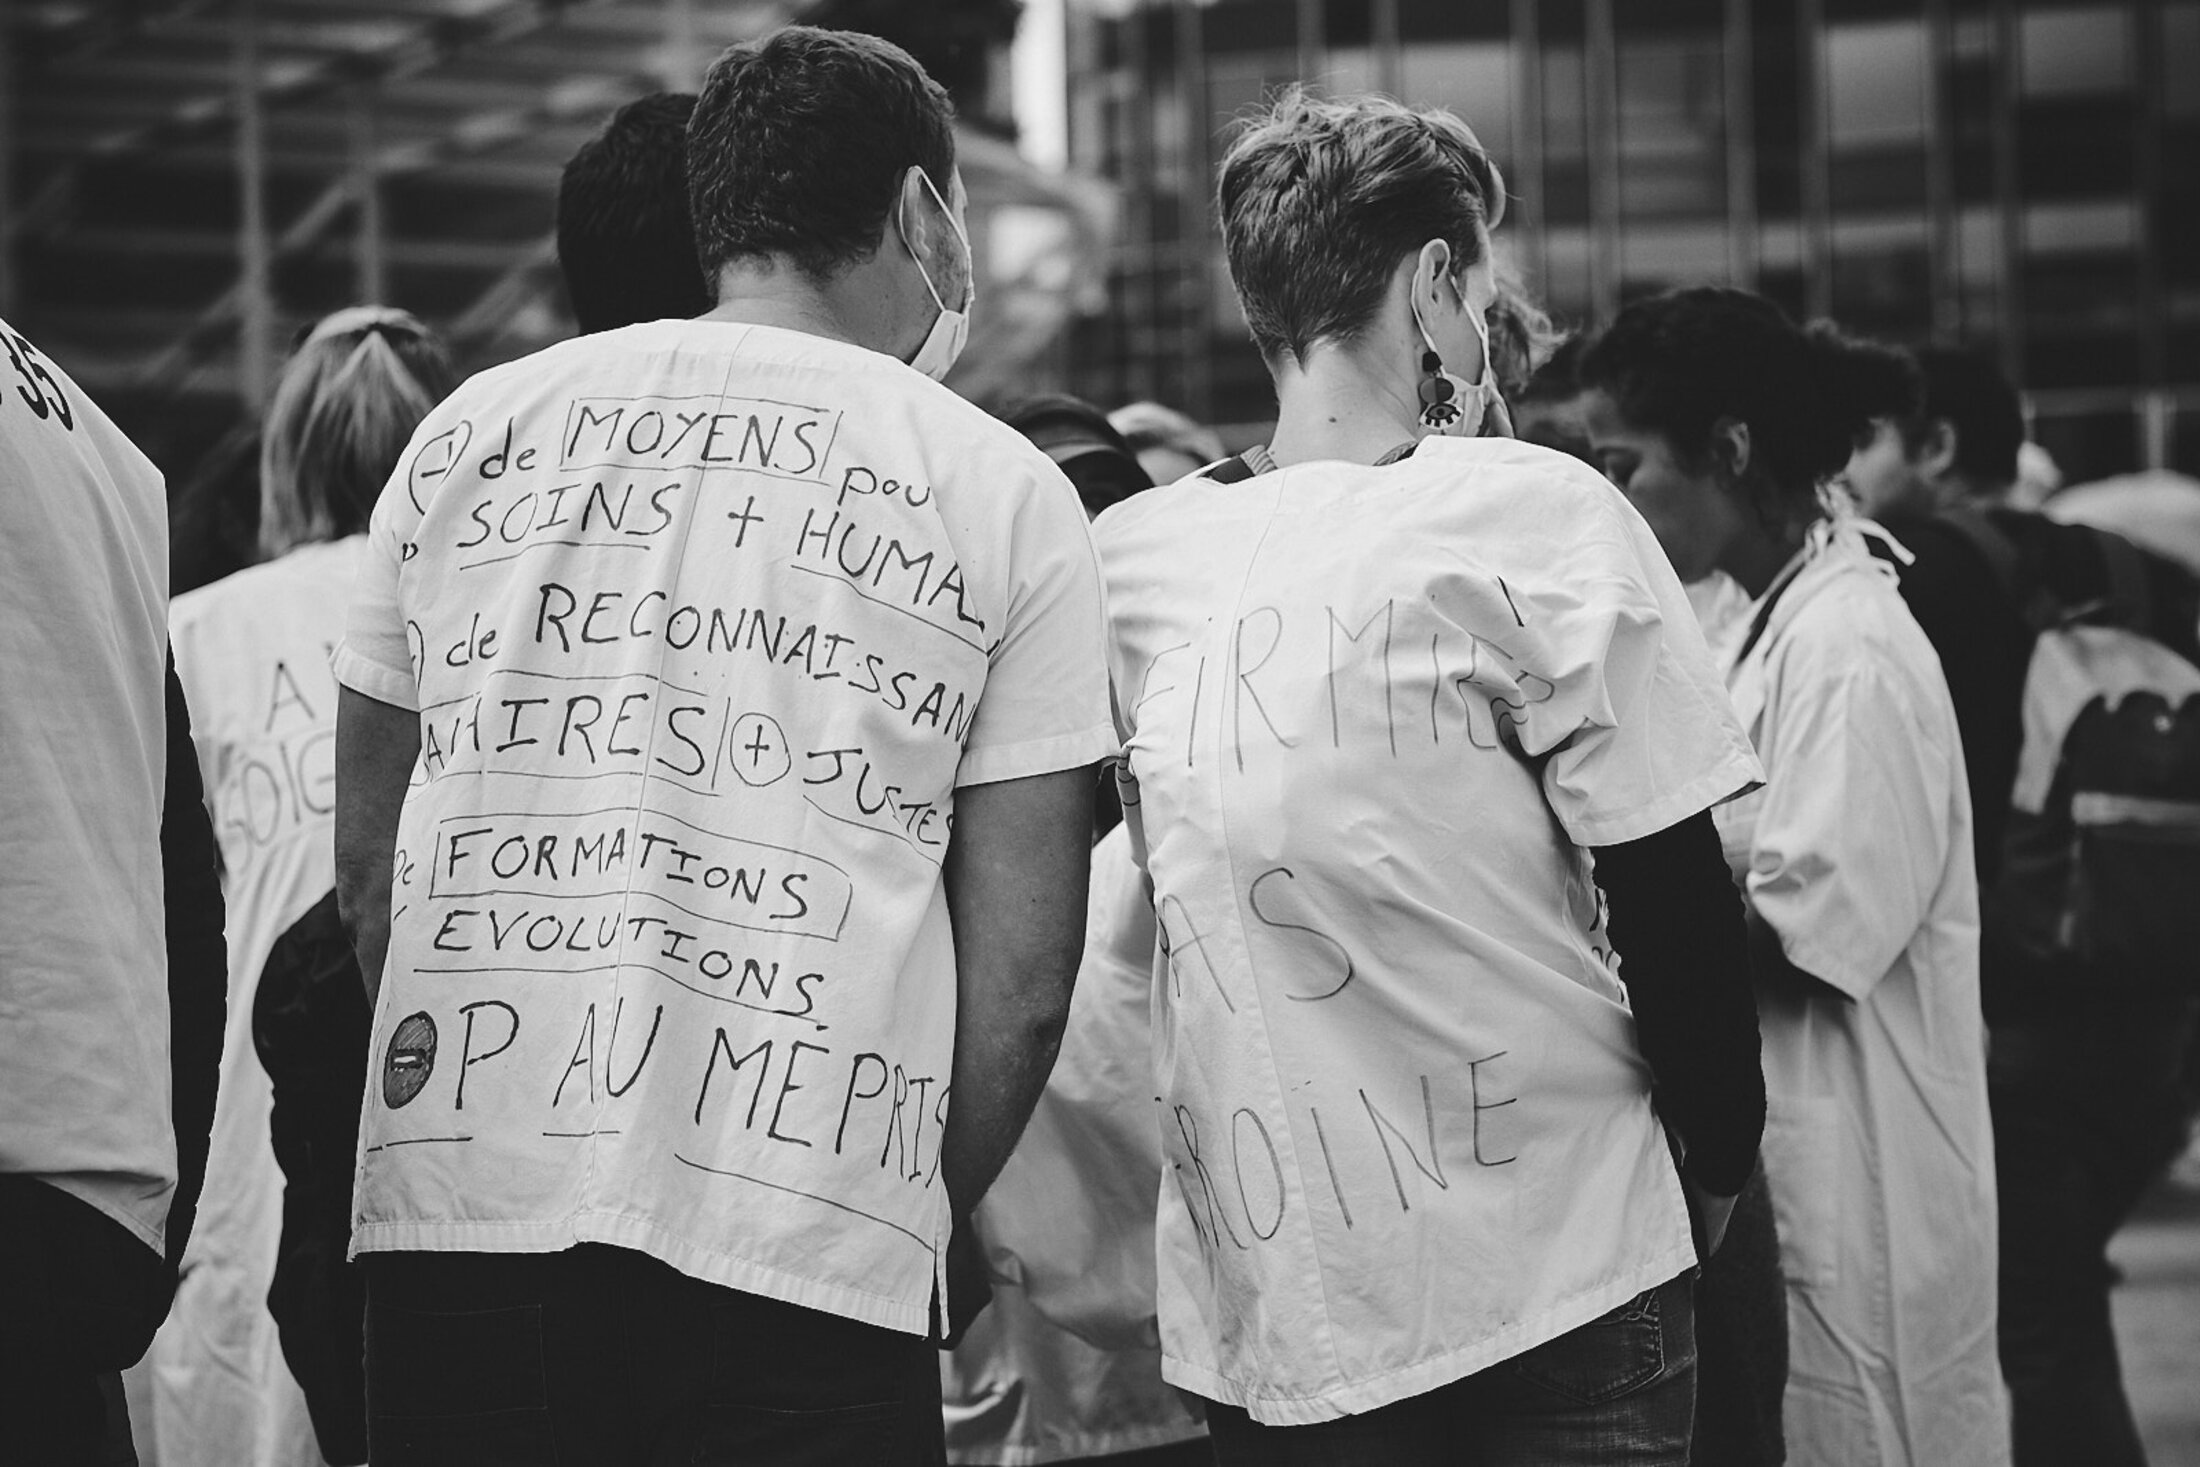 35
A
SOIG
+ de MOYENS pou
SOINS + HUMA
de RECONNAISSAN
AIRES + JUSTES
De FORMATIONS
EVOLUTIONS
STOP AU MÉPRIS
FIRMI
AS
ROÏNE